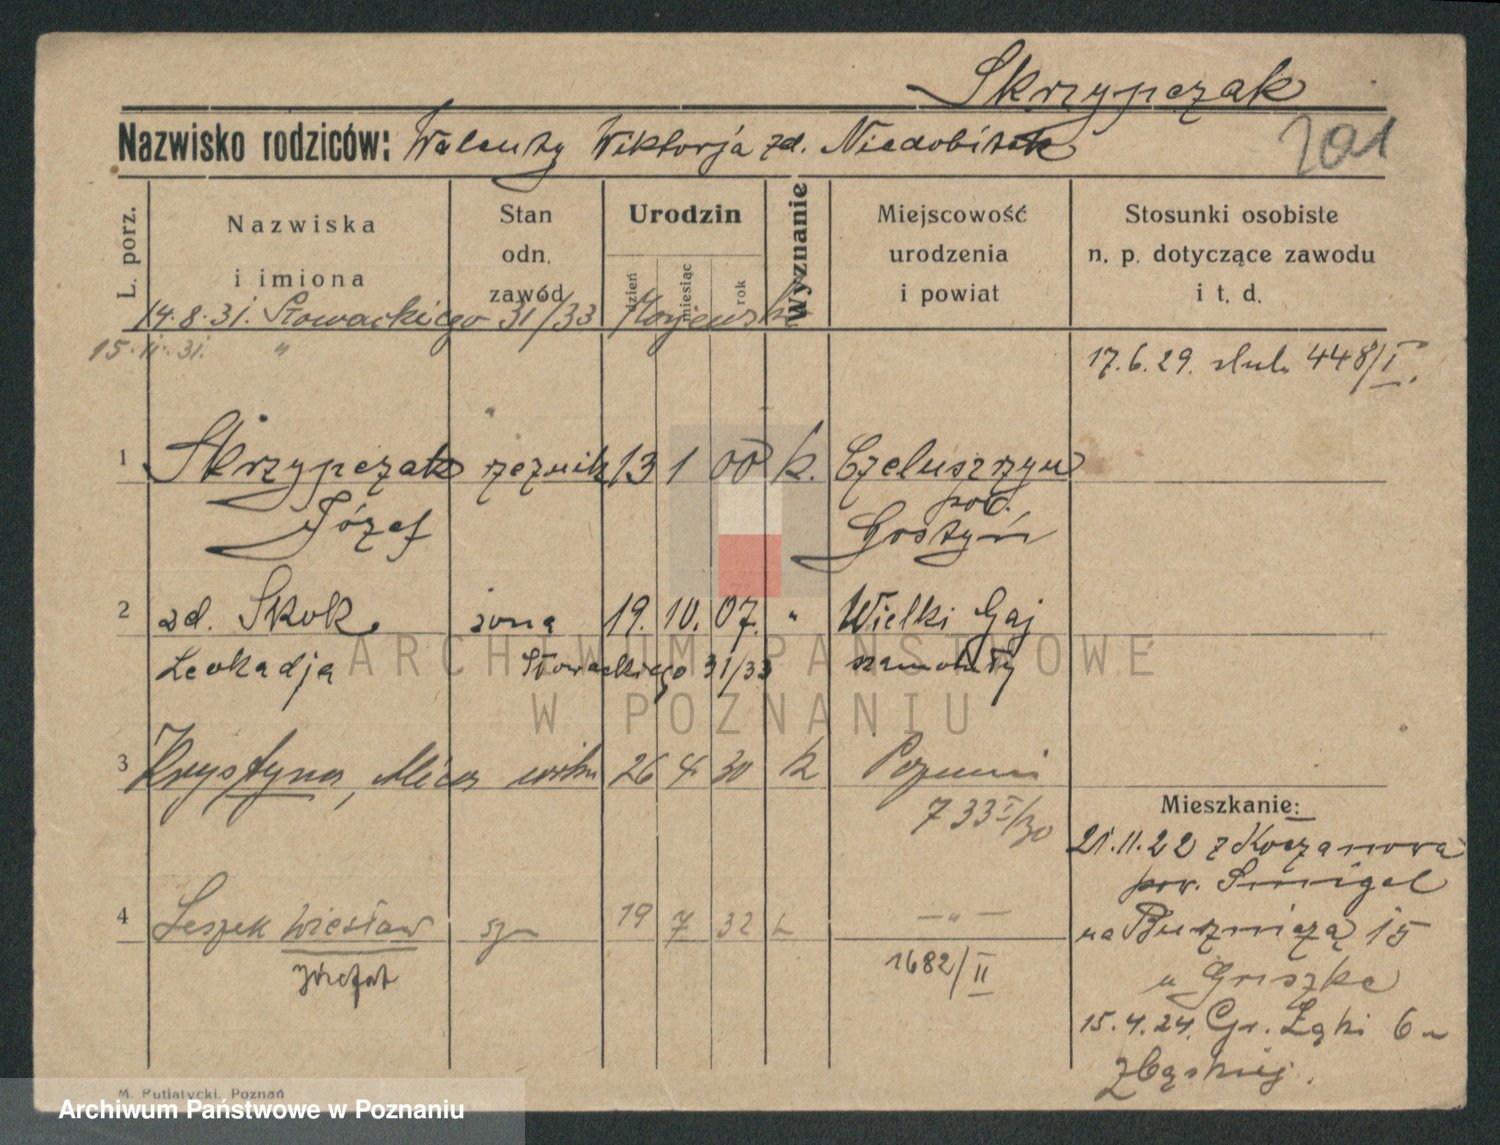 Skrzypczak
Nazwisko rodziców: Walenty Wiktorja zd. Niedobitek
201
L. porz.
Nazwiska
i imiona
Stan
odn.
zawód
Urodzin
dzień
miesiąc
rok
Wyznanie
Miejscowość
urodzenia
i powiat
Stosunki osobiste
n. p. dotyczące zawodu
i t. d.
14.8.31. Słowackiego 31/33
15.11.31. "
17.6.29. ślub. 448/I.
1 Skrzypczak rzeźnik 13 1 00 k.
pow.
Józef Gostyń
2 zd. Skok żona 19. 10. 07. " Wielki Gaj
Leokadja Słowackiego 31/33 Szamotuły
ARCHIWUM PAŃSTWOWE
W POZNANIU
3 Krystyna, 26 4 30 k Poznań
733 I/30
Mieszkanie:
21.11.22 z
pow. Śmigel
4 Leszek Wiesław syn 19 7 32 k — " —
Józefat 1682/II
15
u
15.4.24. Gr. Łąki 6
Zbąskiej.
M. Putiatycki, Poznań
Archiwum Państwowe w Poznaniu